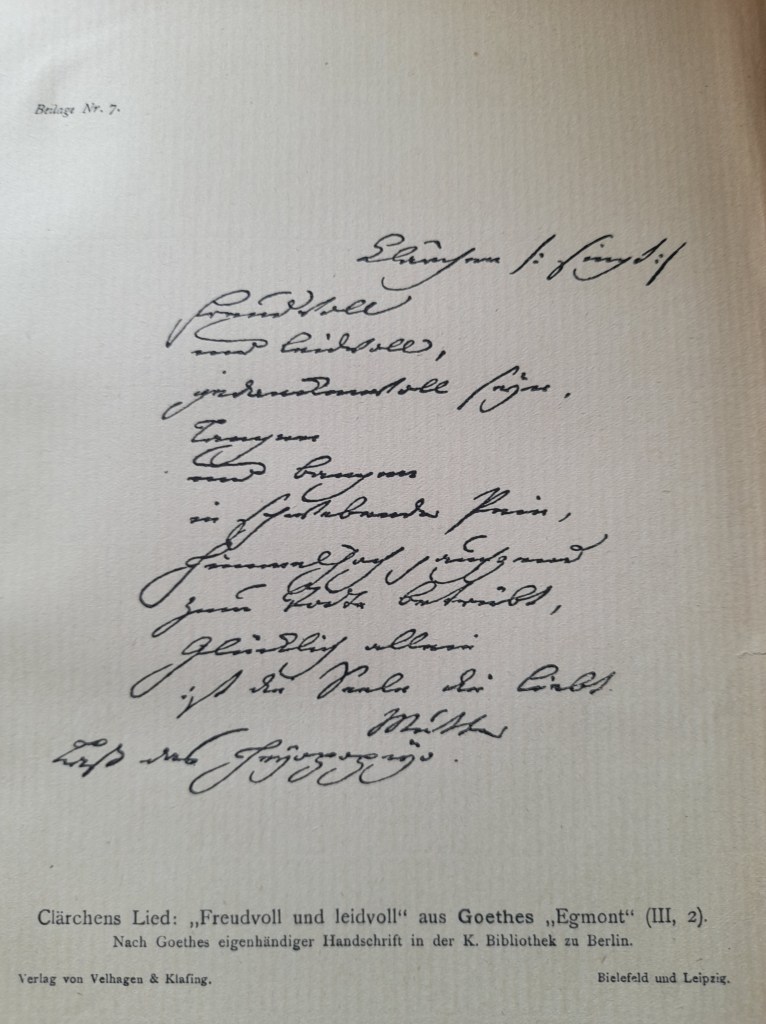 Beilage Nr. 7.
Clärchen |: singt :|
Freudvoll
und leidvoll,
gedanckenvoll seyn,
Langen
und bangen
in schwebender Pein,
Himmelhoch jauchzend
zum Todte betrübt,
Glücklich allein
ist die Seele die liebt.
Mutter
Laß das Heyopopeyo.
Clärchens Lied: „Freudvoll und leidvoll“ aus Goethes „Egmont“ (III, 2).
Nach Goethes eigenhändiger Handschrift in der K. Bibliothek zu Berlin.
Verlag von Velhagen & Klasing.
Bielefeld und Leipzig.